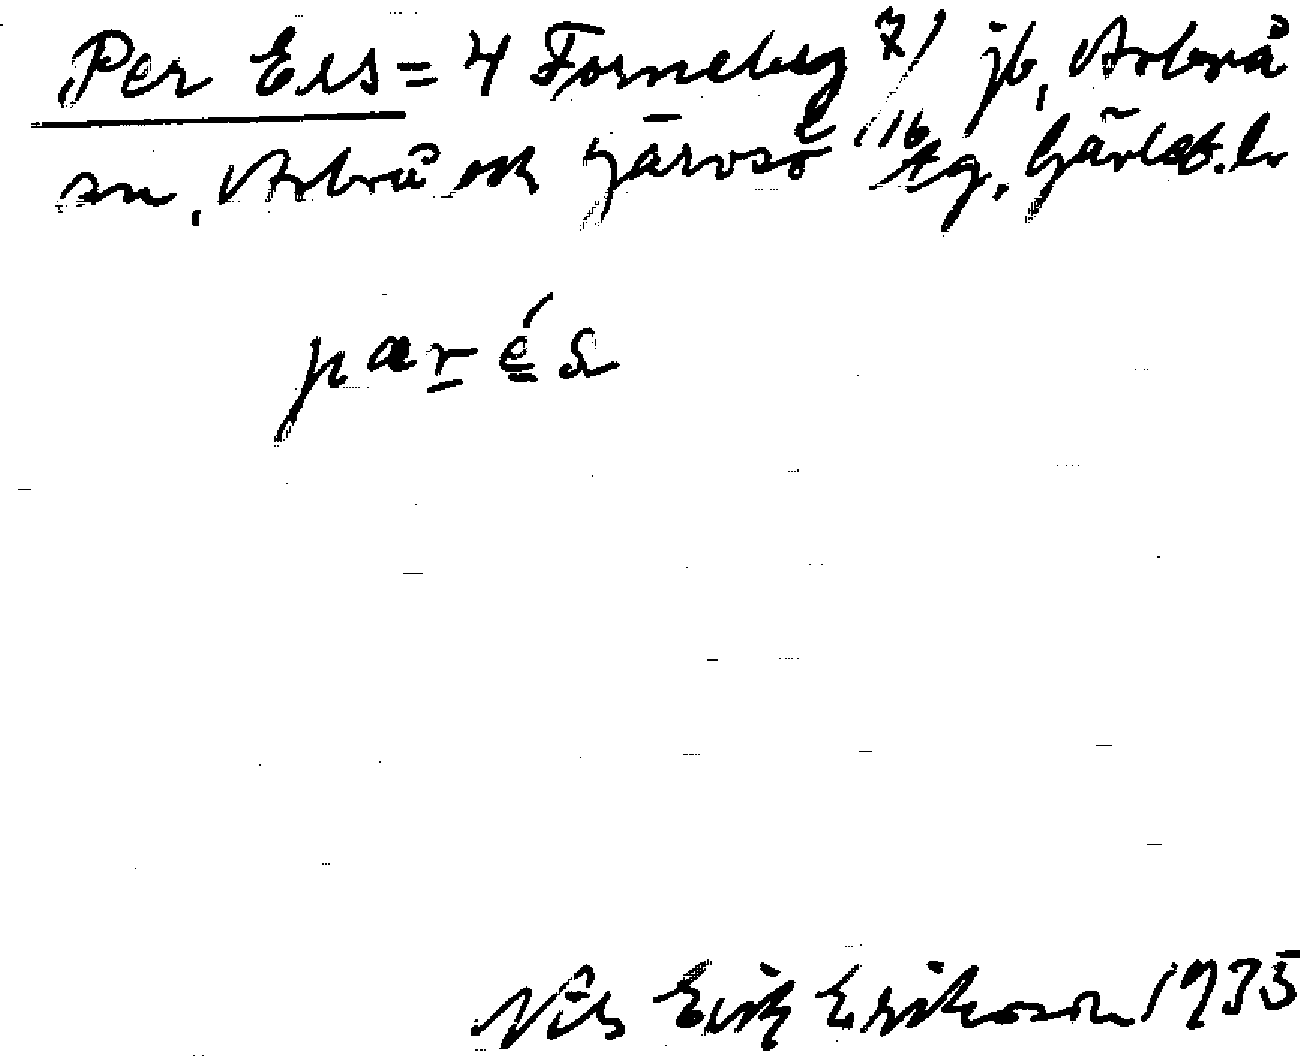 Per Ers = 4 Forneby 7/16 jb, Arbrå
sn, Arbrå och Järvsö tg, Gävleb. l.
parés
Nils Erik Eriksson 1935